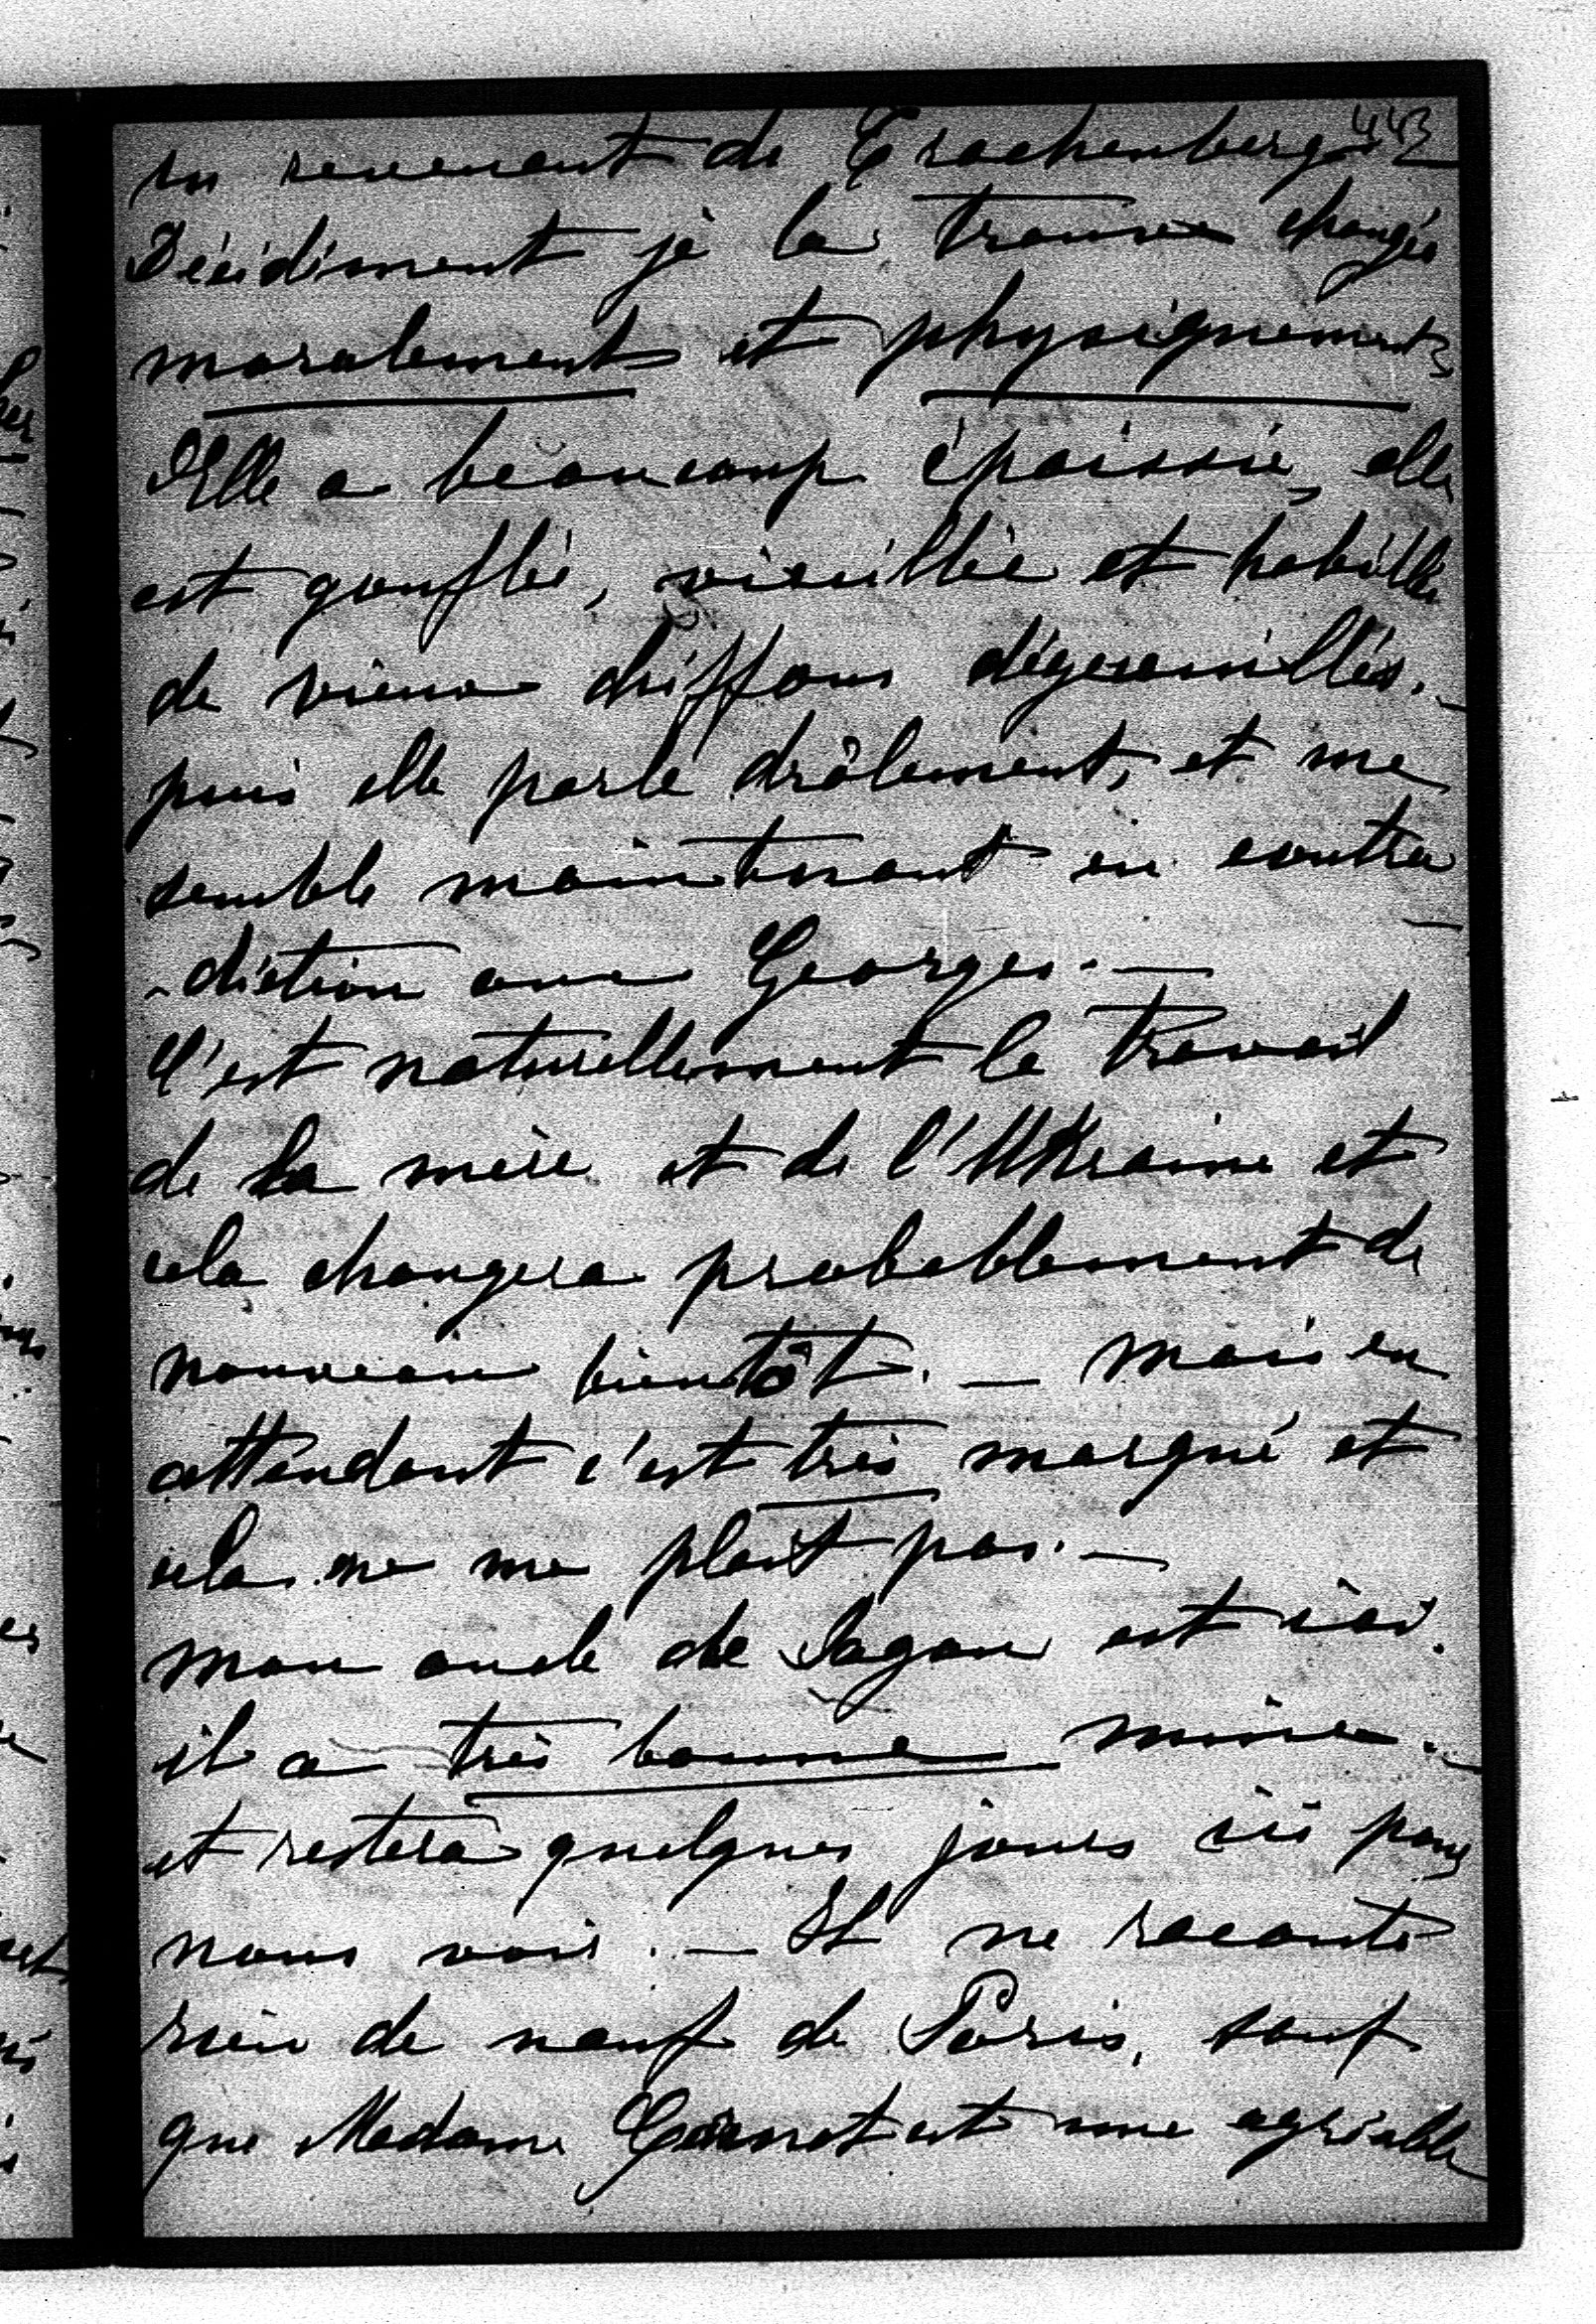 443
en revenant de Trachenberg.
Décidément je la trouve changée
moralement et physiquement
Elle a beaucoup épaissie, elle
est gonflée, vieillie et habillée
de vieux chiffons déguenillés. _
puis elle parle drôlement, et me
semble maintenant en contra
-diction avec Georges. —
C'est naturellement le travail
de la mère et de l'Ukraine et
cela changera probablement de
nouveau bientôt. — mais en
attendant c'est très marqué et
cela ne me plait pas. —
mon oncle de Sagan est ici.
il a très bonne mine. _
et restera quelques jours ici pour
nous voir. — Il ne raconte
rien de neuf de Paris, sauf
que Madame est une agréable